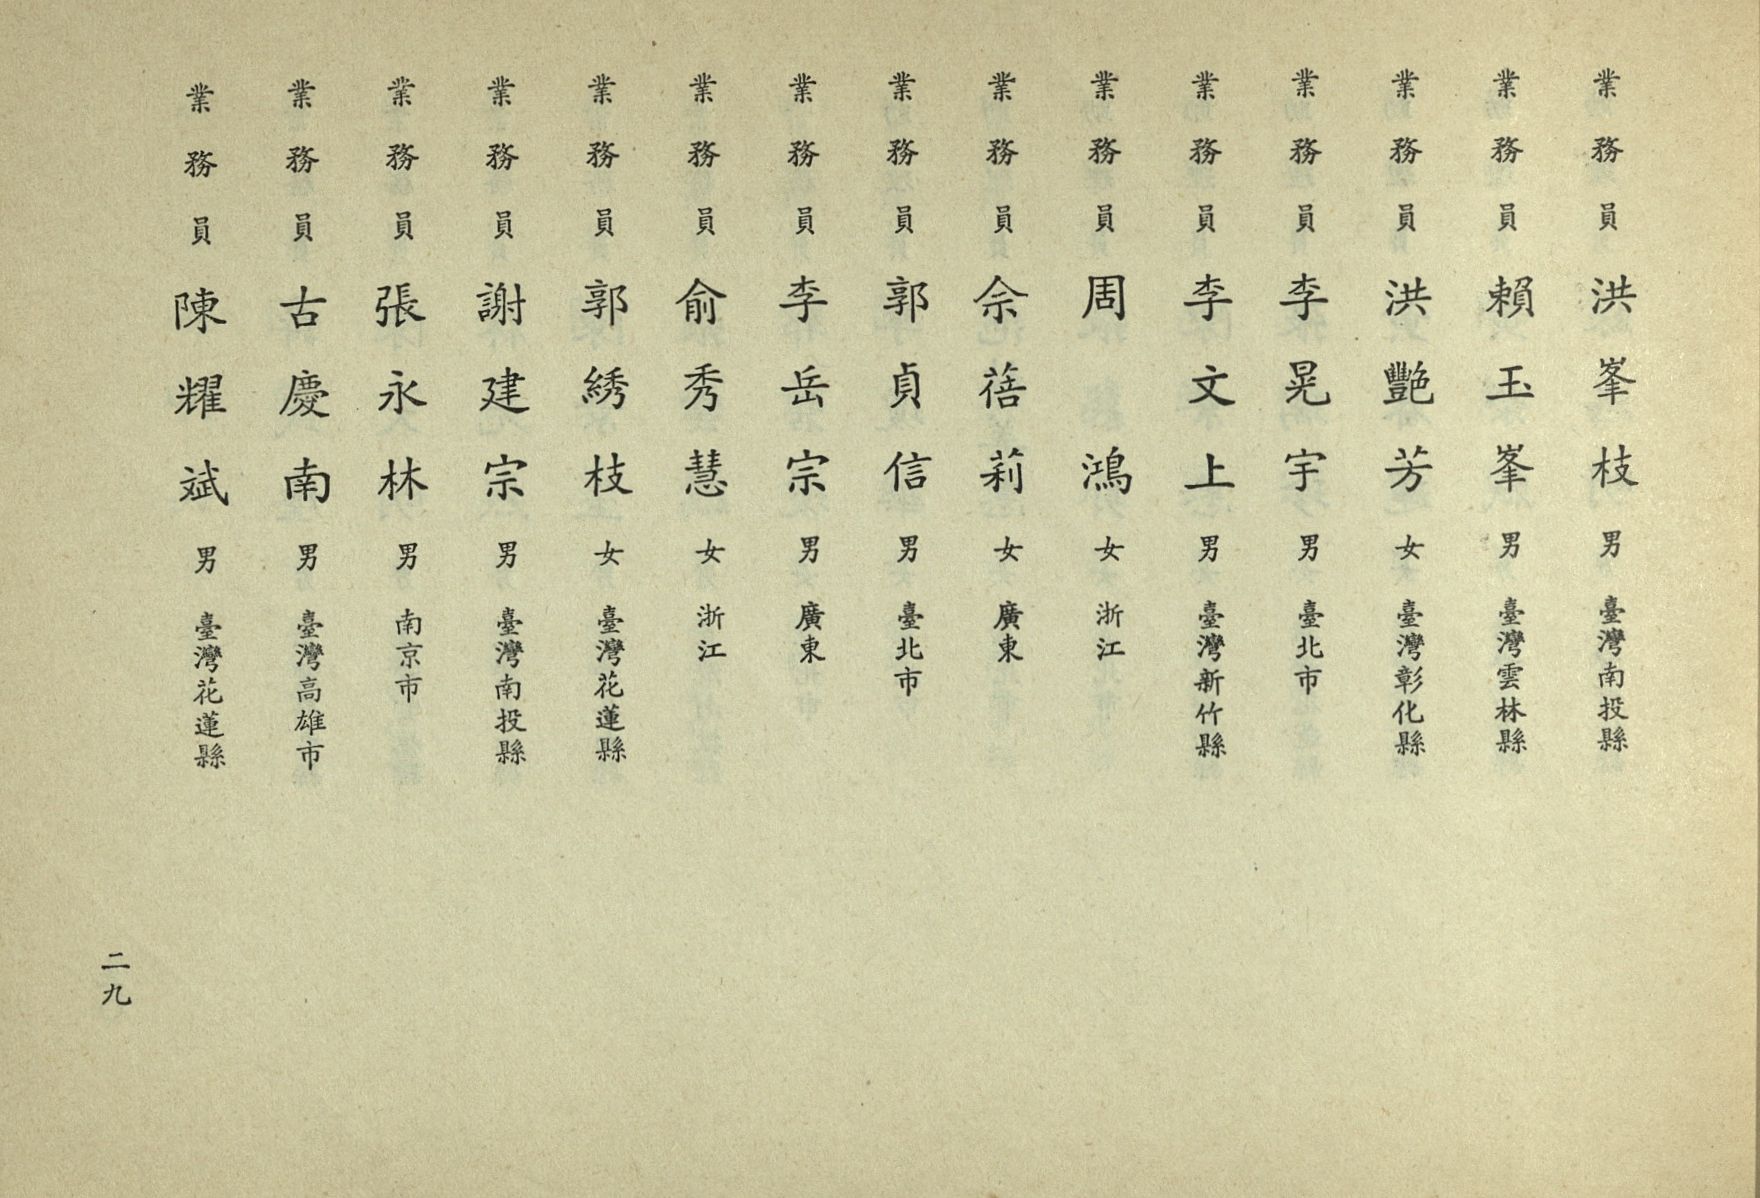 業務員 洪峯枝 男 臺灣南投縣
業務員 賴玉峯 男 臺灣雲林縣
業務員 洪艷芳 女 臺灣彰化縣
業務員 李晃宇 男 臺北市
業務員 李文上 男 臺灣新竹縣
業務員 周鴻 女 浙江
業務員 佘蓓莉 女 廣東
業務員 郭貞信 男 臺北市
業務員 李岳宗 男 廣東
業務員 俞秀慧 女 浙江
業務員 郭綉枝 女 臺灣花蓮縣
業務員 謝建宗 男 臺灣南投縣
業務員 張永林 男 南京市
業務員 古慶南 男 臺灣高雄市
業務員 陳耀斌 男 臺灣花蓮縣
二九